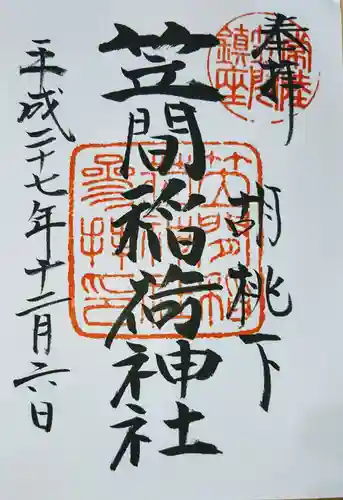 奉拝
胡桃下
笠間稲荷神社
平成二十七年十二月六日